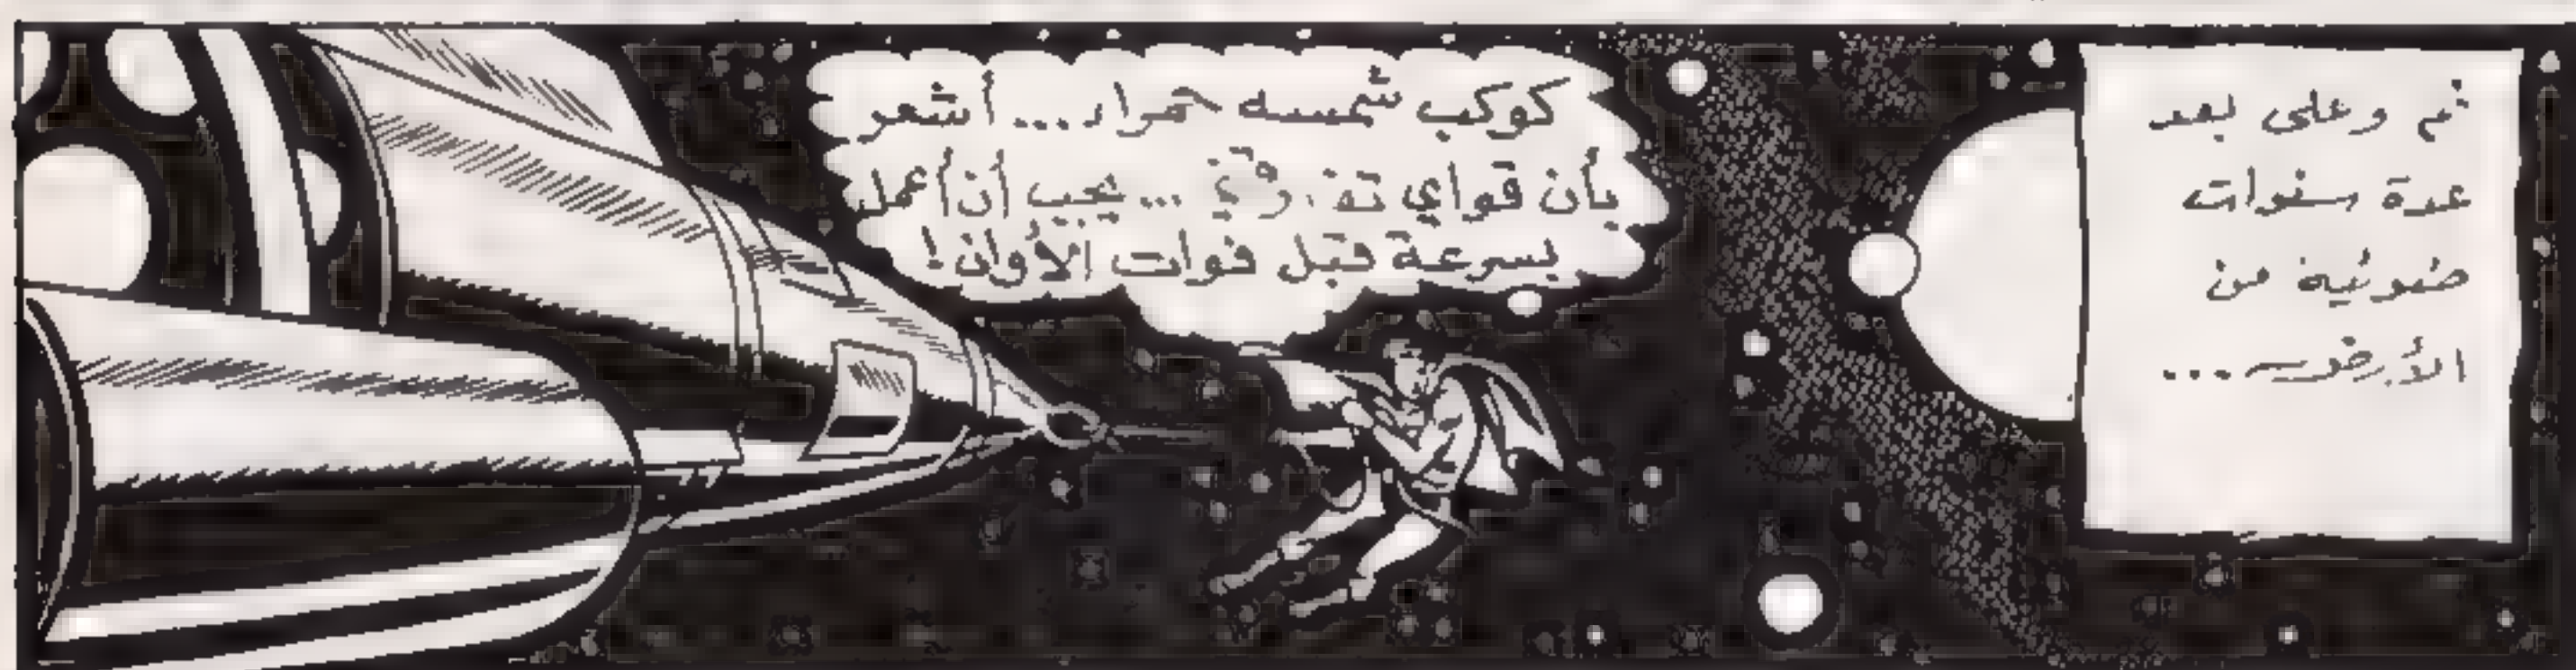 ثم وعلى بعد
عدة سنوات
ضوئية من
الأرض...
كوكب شمسه حمراء... أشعر
بأن قواي ... يجب أن أعمل
بسرعة قبل فوات الأوان!